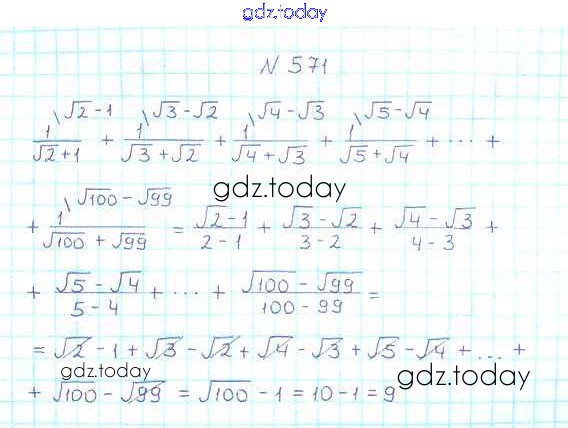 gdz.today
N 571
1\√2-1/√2+1 + 1\√3-√2/√3+√2 + 1\√4-√3/√4+√3 + 1\√5-√4/√5+√4 + ... +
gdz.today
+ 1\√100-√99/√100+√99 = √2-1/2-1 + √3-√2/3-2 + √4-√3/4-3 +
+ √5-√4/5-4 + ... + √100-√99/100-99 =
= √2 - 1 + √3 - √2 + √4 - √3 + √5 - √4 + ... +
gdz.today
gdz.today
+ √100 - √99 = √100 - 1 = 10 - 1 = 9